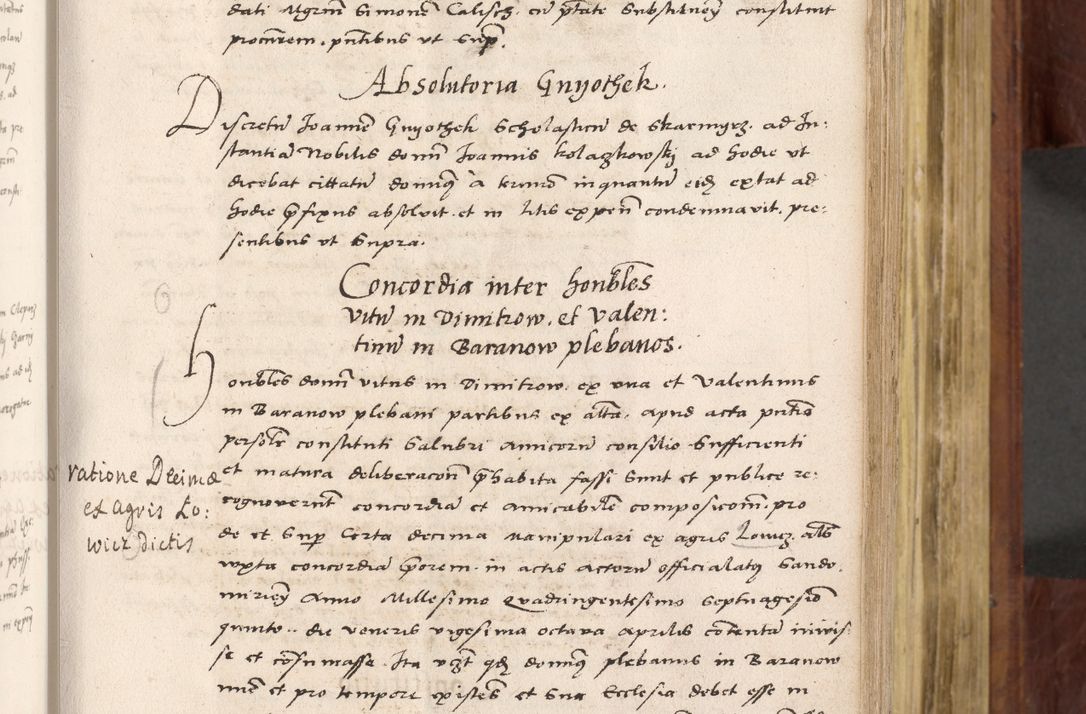 dati Mgrm Simonem Calisch. cu ptate Substituen constituit
procurem. pntibus ut Supr.
Absolutoria Gnyothek.
Discretu Joannē Gnyothek Scholasticu de Skarmyrz. ad In:
stantia Nobilis domi Joannis Kolaczkowskj ad hodie ut
dicebat cittatu domq a termo inquantu eidz extat ad
hodie pfixus absolvit. et in litis expen condemnavit. pre:
sentibus ut Supra.
Concordia inter honbles
vitu in Dimitrow. et Valen:
tinu in Baranow plebanos.
honbles domi vitus in Dimitrow. ex una et Valentinus
in Baranow plebani partibus ex alta. apud acta pntes
persolr constituti Salubri amicoru consilio Sufficienti
et matura deliberacon phabita fassi Sunt et publice re:
cognoverunt concordia et amicabile composicom. pro
de et Sup Certa decima manipulari ex agris Lowicz. als
iuxta concordia priorem. in actis actoru officialatq Sando.
mirien Anno Millesimo Quadringentesimo Septuagesio
quinto.. die veneris vigesima octava aprilis cotenta inivis:
se et cosumasse. Ita vczt qdz domq plebanus in Baranow
nuc et pro tempore existes et Sua Ecclesia debet esse in
ratione Decimæ
et agris Lo:
wicz dictis